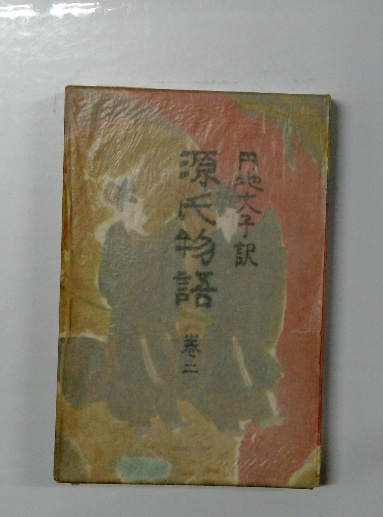 円地文子訳
源氏物語
巻二